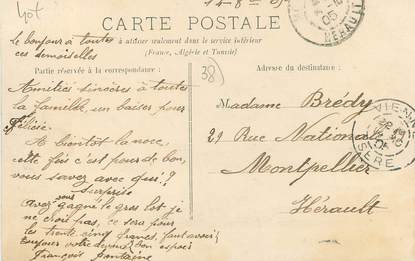 14-8-05
CARTE POSTALE
Le bonjour à toutes
ces demoiselles
à utiliser seulement dans le service intérieur
(France, Algérie et Tunisie)
Partie réservée à la correspondance :
Adresse du destinataire :
(38)
Amitiés sincères à toutes
la famille, un baiser pour
Félicie.
A bientôt la noce,
cette fois c'est pour de bon,
vous savez avec qui ?
Surprise
vous
Avez gagné le gros lot je
ne crois pas, ce sera pour
les trente cinq francs, faut avoir
toujours votre bon espoir
François
Madame Brédy
21 Rue Nationale
Montpellier
Hérault
HERAULT
VIENNE
ISERE